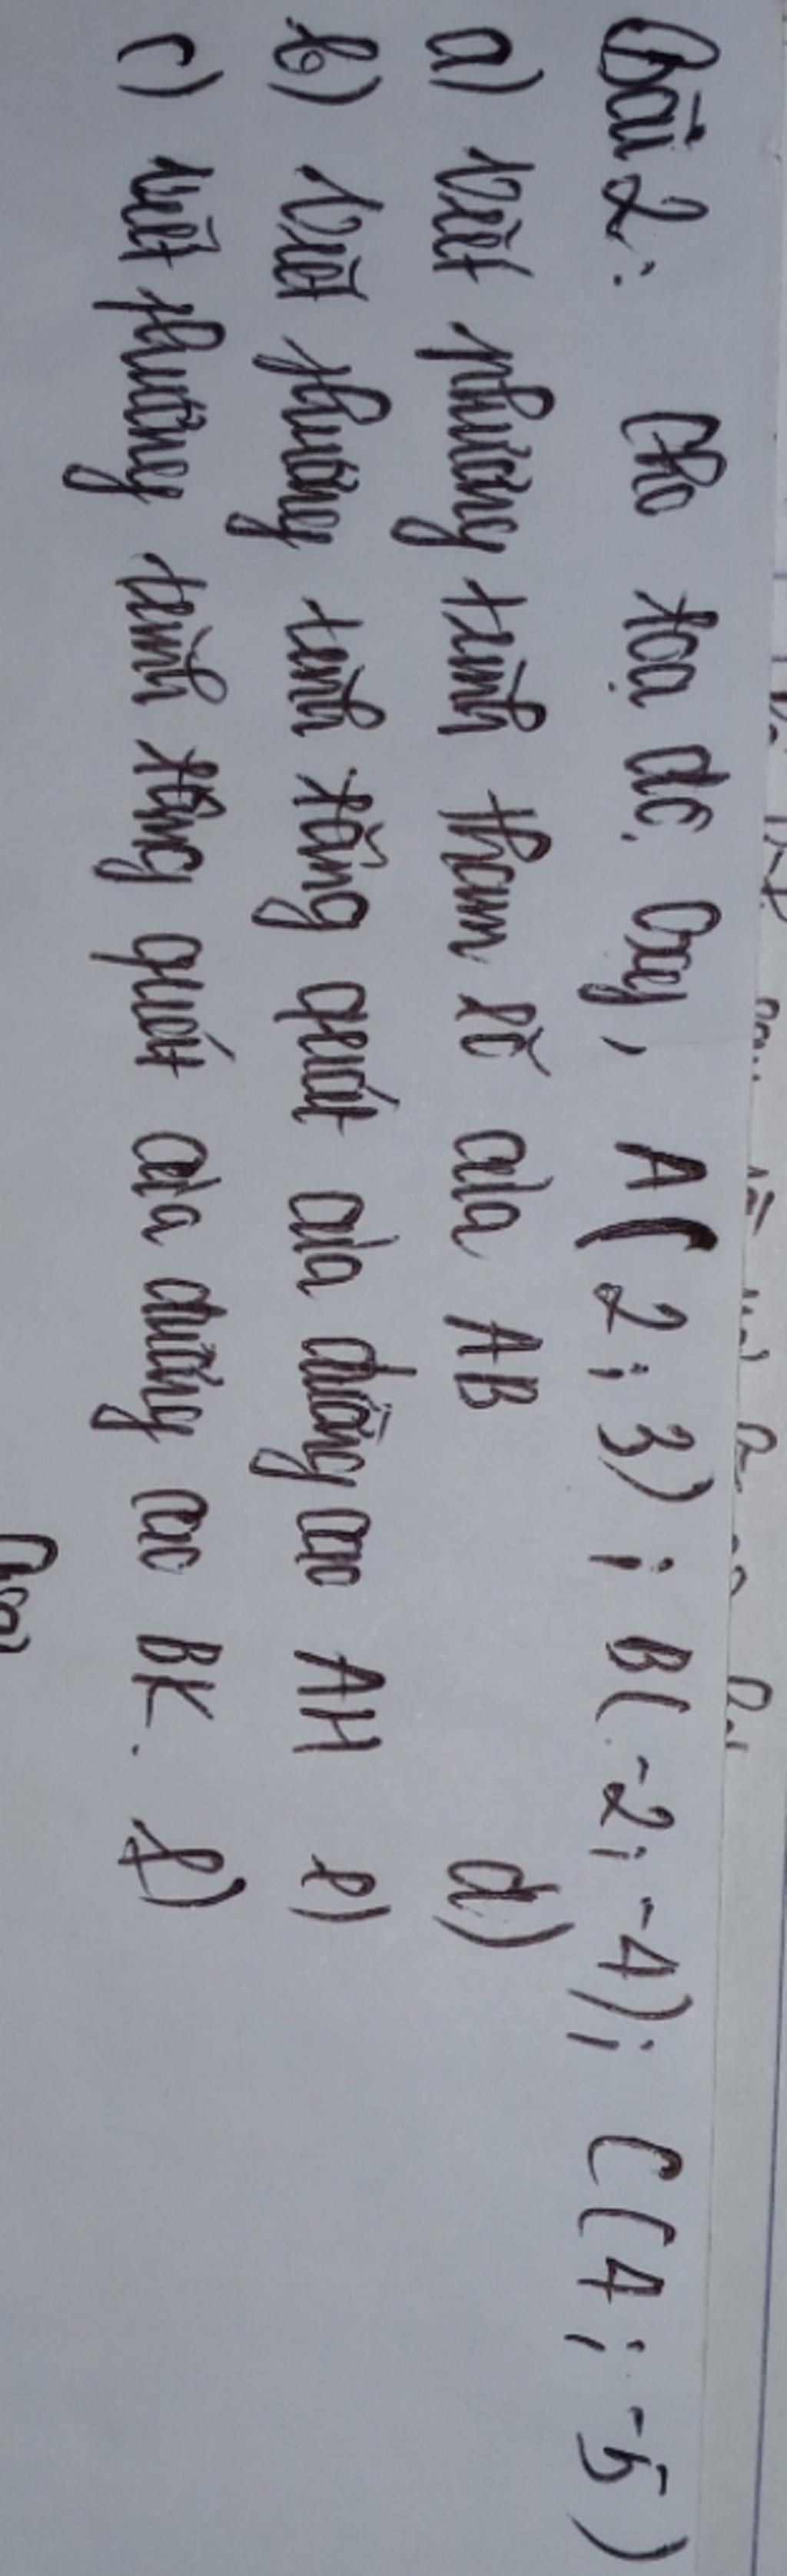 Bài 2: Cho tọa độ Oxy, A(2;3); B(-2;-4); C(4;-5)
a) Viết phương trình tham số của AB d)
b) Viết phương trình tổng quát của đường cao AH e)
c) Viết phương trình tổng quát của đường cao BK. f)